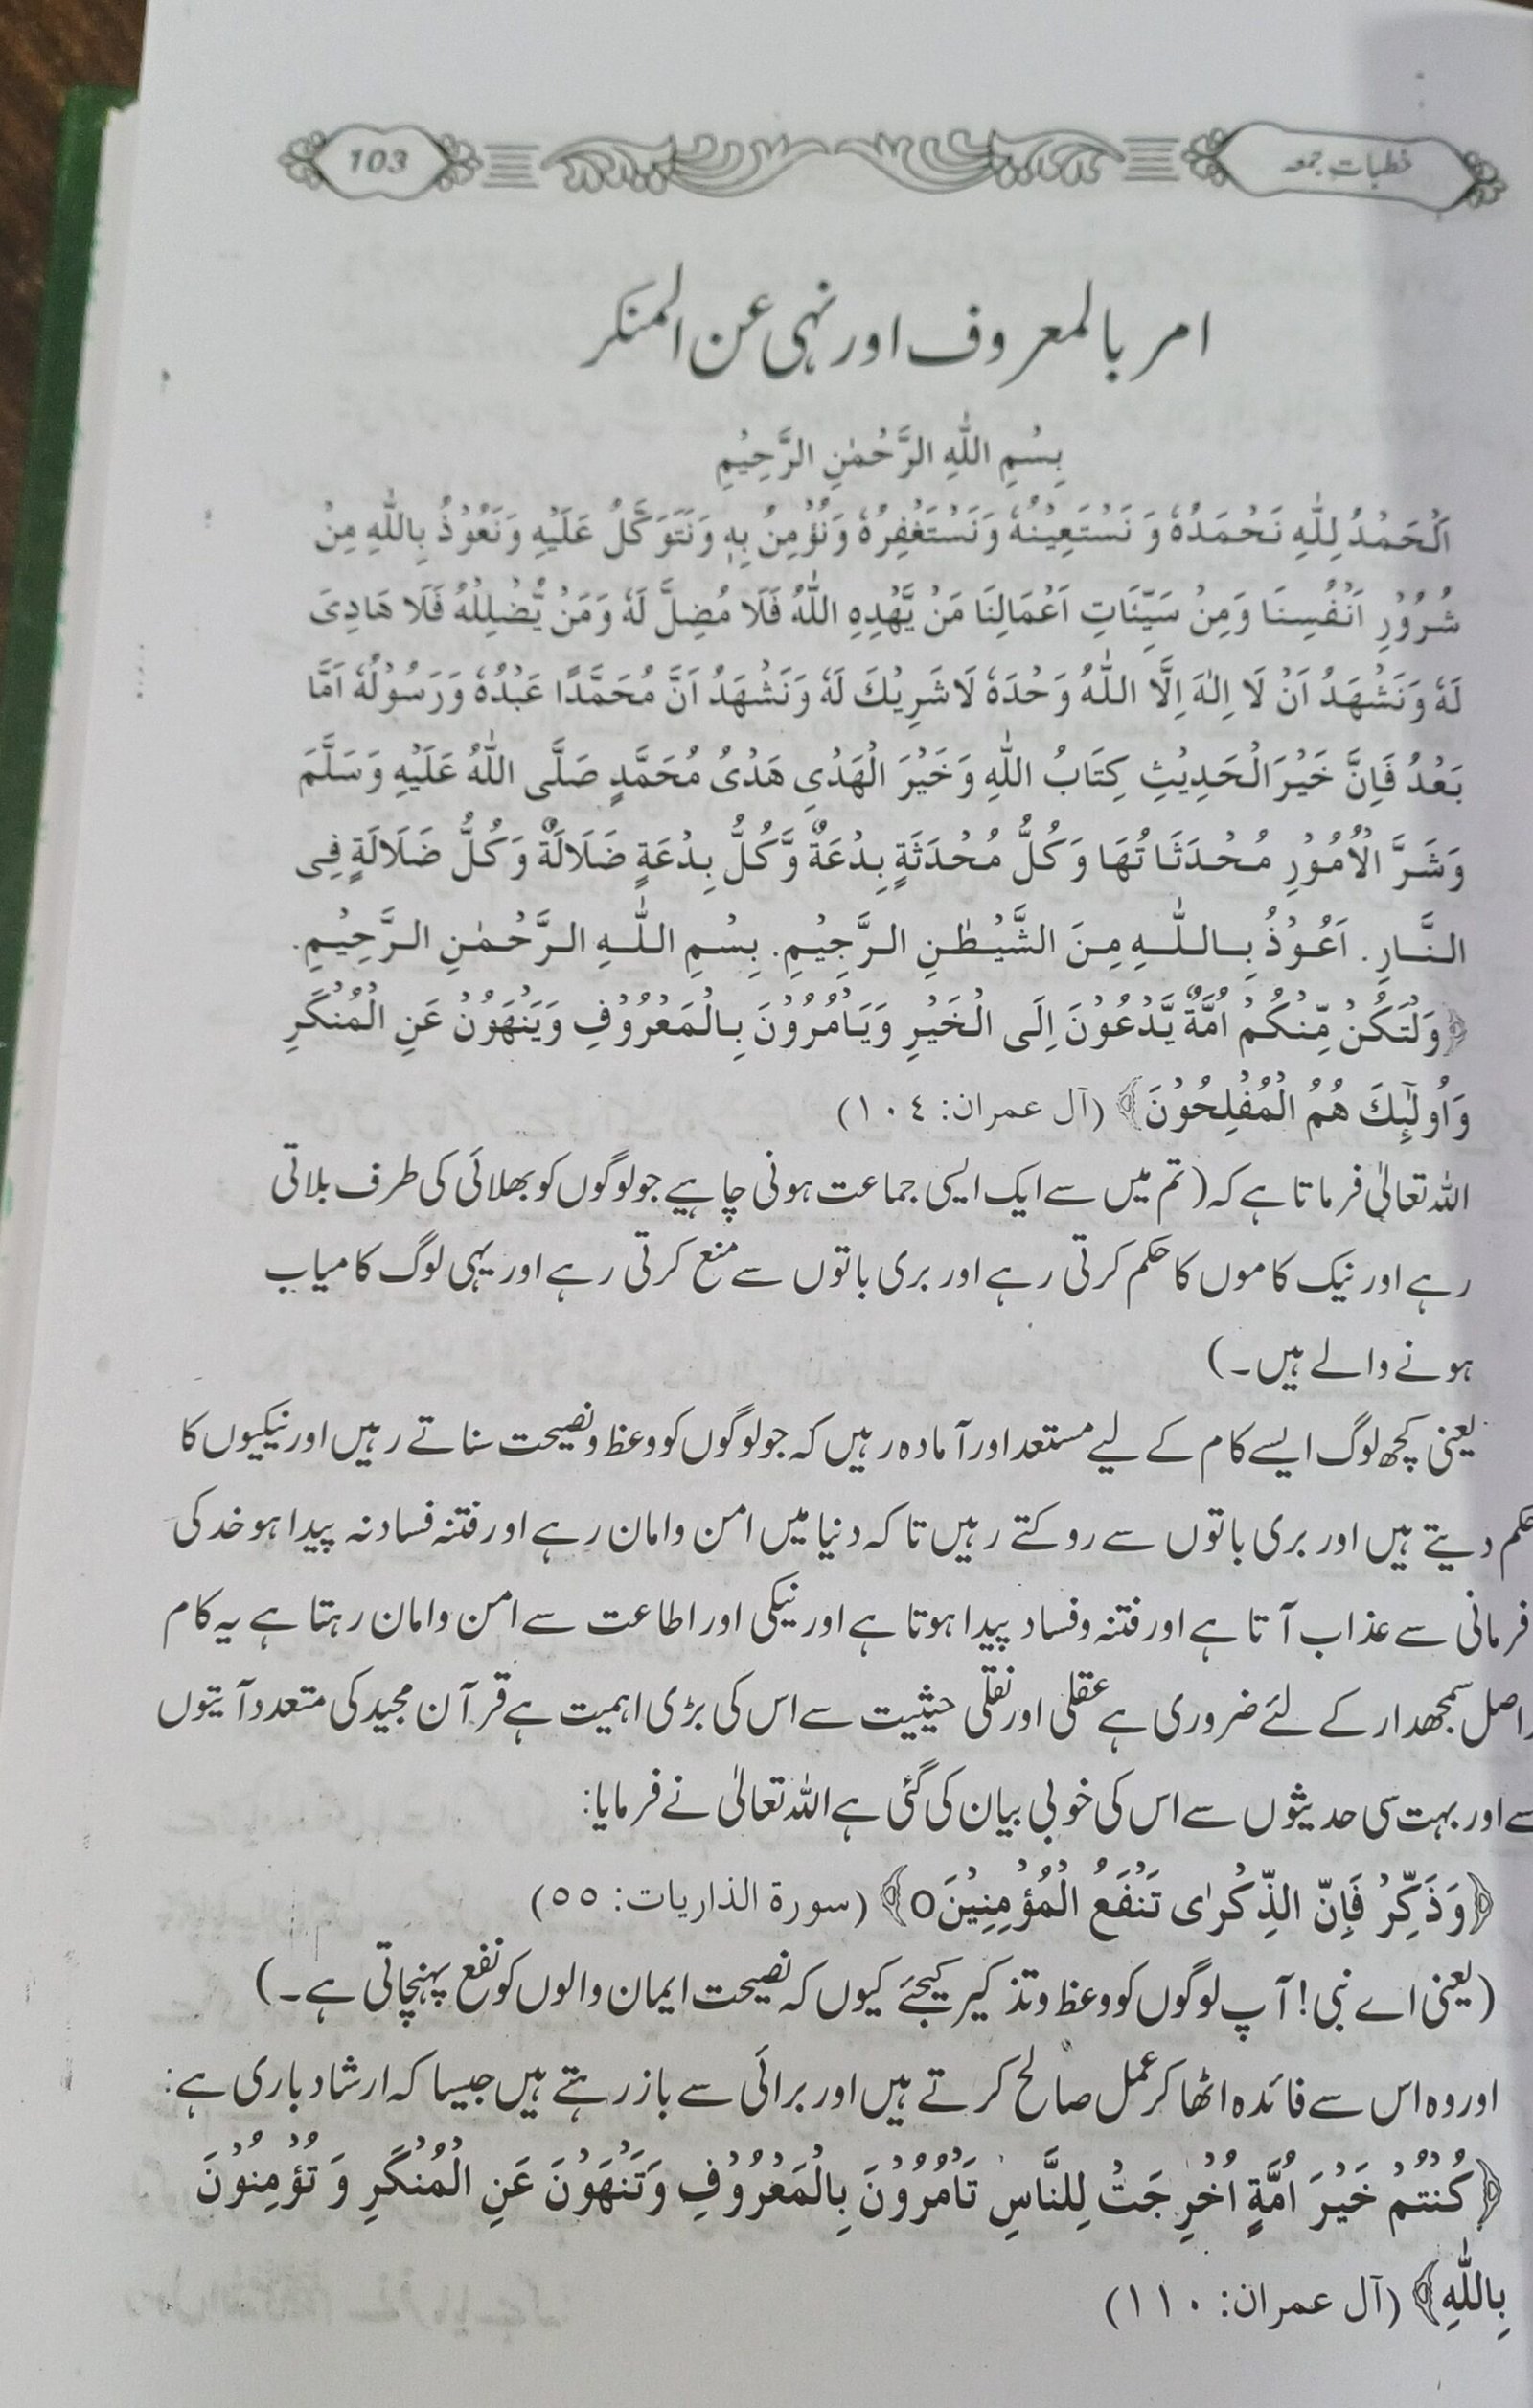 خطبات جمعہ
103
امر بالمعروف اور نہی عن المنکر
بِسْمِ اللّٰهِ الرَّحْمٰنِ الرَّحِيْمِ
اَلْحَمْدُ لِلّٰهِ نَحْمَدُهٗ وَ نَسْتَعِيْنُهٗ وَنَسْتَغْفِرُهٗ وَنُؤْمِنُ بِهٖ وَنَتَوَكَّلُ عَلَيْهِ وَنَعُوْذُ بِاللّٰهِ مِنْ
شُرُوْرِ اَنْفُسِنَا وَمِنْ سَيِّئَاتِ اَعْمَالِنَا مَنْ يَّهْدِهِ اللّٰهُ فَلَا مُضِلَّ لَهٗ وَمَنْ يُّضْلِلْهُ فَلَا هَادِىَ
لَهٗ وَنَشْهَدُ اَنْ لَا اِلٰهَ اِلَّا اللّٰهُ وَحْدَهٗ لَا شَرِيْكَ لَهٗ وَنَشْهَدُ اَنَّ مُحَمَّدًا عَبْدُهٗ وَرَسُوْلُهٗ اَمَّا
بَعْدُ فَاِنَّ خَيْرَ الْحَدِيْثِ كِتَابُ اللّٰهِ وَخَيْرَ الْهَدْيِ هَدْىُ مُحَمَّدٍ صَلَّى اللّٰهُ عَلَيْهِ وَسَلَّمَ
وَشَرَّ الْاُمُوْرِ مُحْدَثَاتُهَا وَكُلُّ مُحْدَثَةٍ بِدْعَةٌ وَّكُلُّ بِدْعَةٍ ضَلَالَةٌ وَكُلُّ ضَلَالَةٍ فِى
النَّارِ. اَعُوْذُ بِاللّٰهِ مِنَ الشَّيْطٰنِ الرَّجِيْمِ. بِسْمِ اللّٰهِ الرَّحْمٰنِ الرَّحِيْمِ.
﴿وَلْتَكُنْ مِّنْكُمْ اُمَّةٌ يَّدْعُوْنَ اِلَى الْخَيْرِ وَيَاْمُرُوْنَ بِالْمَعْرُوْفِ وَيَنْهَوْنَ عَنِ الْمُنْكَرِ
وَاُولٰٓئِكَ هُمُ الْمُفْلِحُوْنَ﴾ (آل عمران: ١٠٤)
اللہ تعالیٰ فرماتا ہے کہ (تم میں سے ایک ایسی جماعت ہونی چاہیے جو لوگوں کو بھلائی کی طرف بلاتی
رہے اور نیک کاموں کا حکم کرتی رہے اور بری باتوں سے منع کرتی رہے اور یہی لوگ کامیاب
ہونے والے ہیں۔)
یعنی کچھ لوگ ایسے کام کے لیے مستعد اور آمادہ رہیں کہ جو لوگوں کو وعظ و نصیحت سناتے رہیں اور نیکیوں کا
حکم دیتے ہیں اور بری باتوں سے روکتے رہیں تاکہ دنیا میں امن و امان رہے اور فتنہ فساد نہ پیدا ہو خد کی
فرمانی سے عذاب آتا ہے اور فتنہ و فساد پیدا ہوتا ہے اور نیکی اور اطاعت سے امن و امان رہتا ہے یہ کام
راصل سمجھدار کے لئے ضروری ہے عقلی اور نقلی حیثیت سے اس کی بڑی اہمیت ہے قرآن مجید کی متعدد آیتوں
سے اور بہت سی حدیثوں سے اس کی خوبی بیان کی گئی ہے اللہ تعالیٰ نے فرمایا:
﴿وَذَكِّرْ فَاِنَّ الذِّكْرٰى تَنْفَعُ الْمُؤْمِنِيْنَ0﴾ (سورة الذاريات: ٥٥)
(یعنی اے نبی! آپ لوگوں کو وعظ و تذکیر کیجئے کیوں کہ نصیحت ایمان والوں کو نفع پہنچاتی ہے۔)
اور وہ اس سے فائدہ اٹھا کر عمل صالح کرتے ہیں اور برائی سے باز رہتے ہیں جیسا کہ ارشاد باری ہے:
﴿كُنْتُمْ خَيْرَ اُمَّةٍ اُخْرِجَتْ لِلنَّاسِ تَاْمُرُوْنَ بِالْمَعْرُوْفِ وَتَنْهَوْنَ عَنِ الْمُنْكَرِ وَ تُؤْمِنُوْنَ
بِاللّٰهِ﴾ (آل عمران: ١١٠)